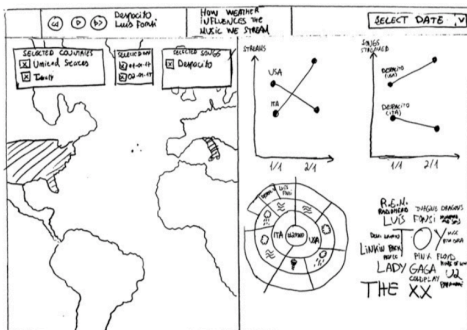 Despacito
Luis Fonsi
HOW WEATHER
INFLUENCES THE
MUSIC WE STREAM
SELECT DATE
SELECTED COUNTRIES
X United States
X Italy
SELECTED DAY
X 01-01-17
X 02-01-17
SELECTED SONGS
X Despacito
STREAMS
USA
ITA
1/1
2/1
SONGS
STREAMED
DESPACITO
(USA)
DESPACITO
(ITA)
1/1
2/1
LUIS
FONSI
ITA
USA
R.E.M.
RADIOHEAD
IMAGINE DRAGONS
LUIS FONSI
JOY
LINKIN PARK
PINK FLOYD
LADY GAGA
COLDPLAY
U2
THE XX